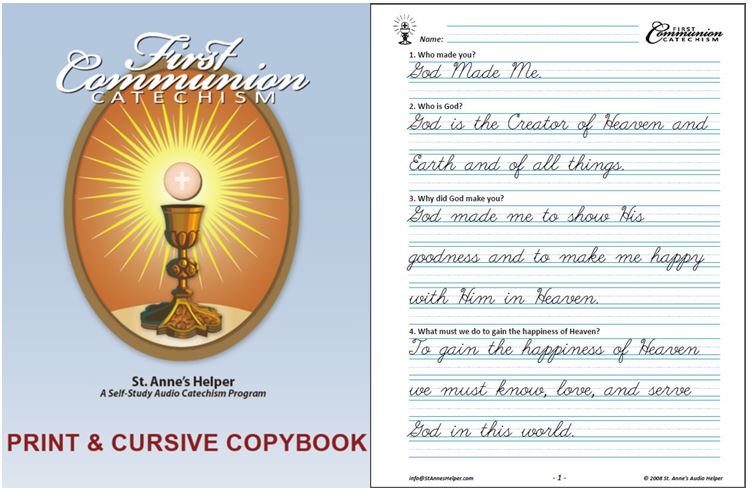 First
Communion
CATECHISM
St. Anne's Helper
A Self-Study Audio Catechism Program
PRINT & CURSIVE COPYBOOK
Name:
FIRST
Communion
CATECHISM
1. Who made you?
God Made Me.
2. Who is God?
God is the Creator of Heaven and
Earth and of all things.
3. Why did God make you?
God made me to show His
goodness and to make me happy
with Him in Heaven.
4. What must we do to gain the happiness of Heaven?
To gain the happiness of Heaven
we must know, love, and serve
God in this world.
info@StAnnesHelper.com
- 1 -
© 2008 St. Anne's Audio Helper